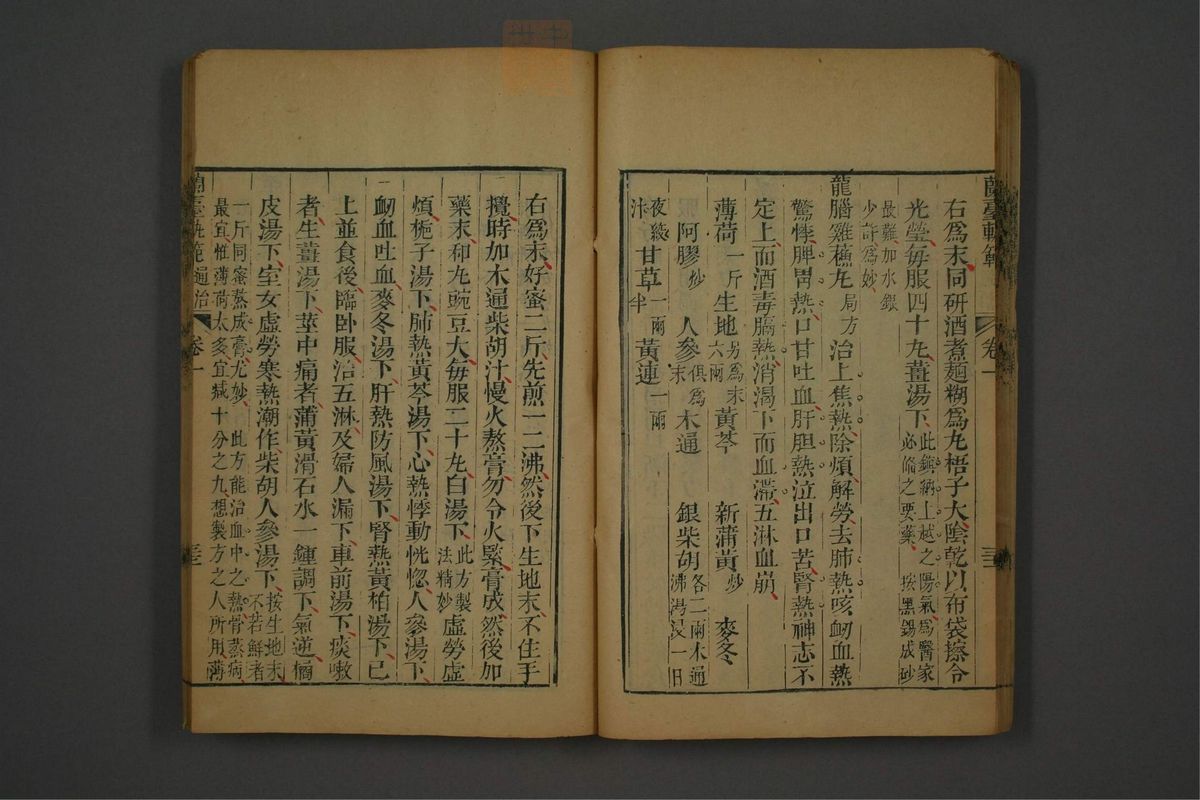 蘭臺軌範 卷一 三
右爲末同研酒煮麵糊爲丸梧子大陰乾以布袋擦令
光瑩每服四十丸薑湯下 此鎮納上越之陽氣爲醫家
必備之要藥 按黑錫成砂
最難加水銀
少許爲妙
龍腦雞蘇丸 局方 治上焦熱除煩解勞去肺熱咳衂血熱
驚悸脾胃熱口甘吐血肝胆熱泣出口苦腎熱神志不
定上而酒毒膈熱消渴下而血滯五淋血崩
薄荷一斤 生地六兩另爲末 黃芩 新蒲黃炒 麥冬
阿膠炒 人參俱爲末 木通 銀柴胡各二兩木通
沸湯浸一日
夜絞
汁 甘草一兩半 黃連一兩
右爲末好蜜二斤先煎一二沸然後下生地末不住手
攪時加木通柴胡汁慢火熬膏勿令火緊膏成然後加
藥末和丸豌豆大每服二十丸白湯下 此方製
法精妙 虛勞虛
煩梔子湯下肺熱黃芩湯下心熱悸動恍惚人參湯下
衂血吐血麥冬湯下肝熱防風湯下腎熱黃栢湯下已
上並食後臨卧服治五淋及婦人漏下車前湯下痰嗽
者生薑湯下莖中痛者蒲黃滑石水一鍾調下氣逆橘
皮湯下室女虛勞寒熱潮作柴胡人參湯下 按生地末
不若鮮者
一斤同蜜蒸成膏尤妙 此方能治血中之熱骨蒸病
最宜惟薄荷太多宜減十分之九想製方之人所用薄
蘭臺軌範 通治 卷一 三